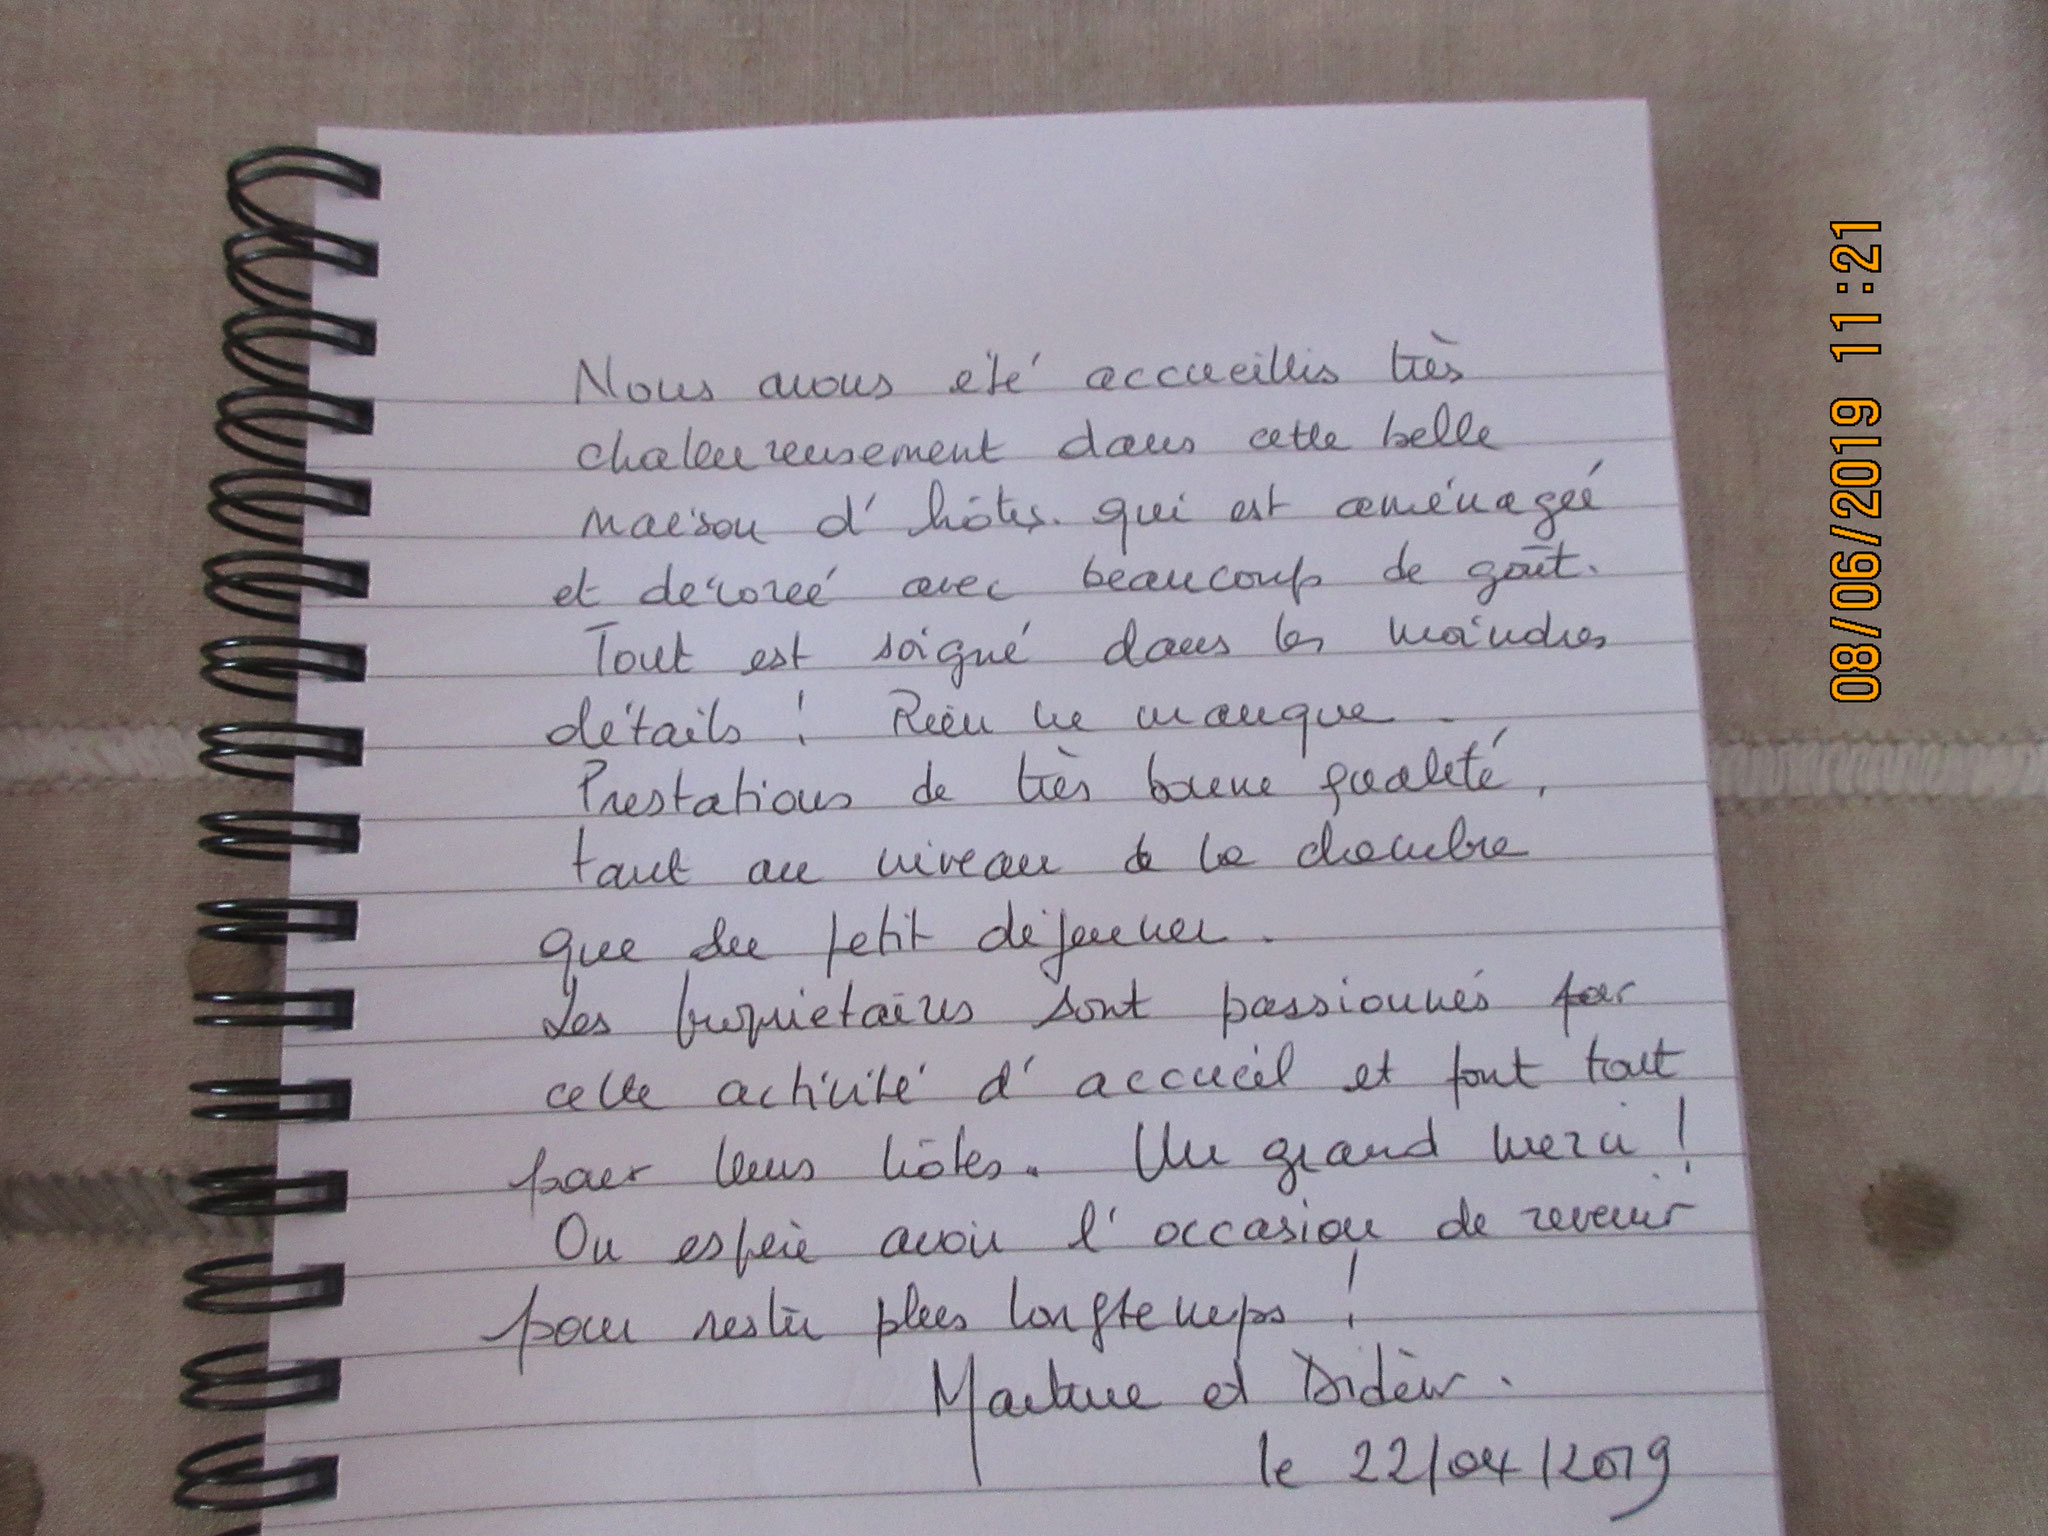 Nous avons été accueillis très
chaleureusement dans cette belle
maison d'hôtes. qui est aménagée
et décorée avec beaucoup de goût.
Tout est soigné dans les moindres
détails ! Rien ne manque.
Prestations de très bonne qualité,
tant au niveau de la chambre
que du petit déjeuner.
Les propriétaires sont passionnés par
cette activité d'accueil et font tout
pour leurs hôtes. Un grand merci !
On espère avoir l'occasion de revenir
pour rester plus longtemps !
Martine et Didier.
le 22/04/2019
08/06/2019 11:21